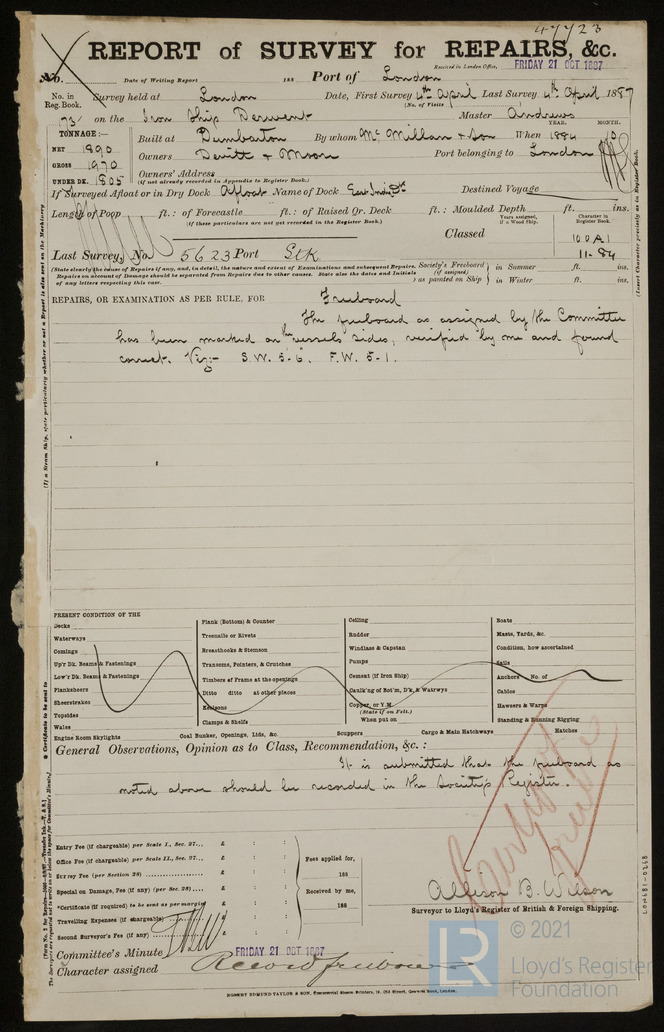 47723
REPORT of SURVEY for REPAIRS, &c.
No. Date of Writing Report 188 Port of London Received in London Office, FRIDAY 21 OCT 1887
No. in Reg. Book. Survey held at London Date, First Survey 4th April Last Survey 4th April 1887
(No. of Visits
73 on the Iron Ship Derwent Master Andrews
TONNAGE:— Built at Dumbarton By whom McMillan & Son When 1884 YEAR. MONTH. 10
NET 1890
GROSS 1970
UNDER DK. 1805
Owners Devitt & Moore Port belonging to London
Owners' Address
(If not already recorded in Appendix to Register Book.)
If Surveyed Afloat or in Dry Dock Afloat Name of Dock East India Dk Destined Voyage
Length of Poop ft.: of Forecastle ft.: of Raised Qr. Deck ft.: Moulded Depth ft. ins.
(If these particulars are not yet recorded in the Register Book.)
Years assigned, if a Wood Ship. Character in Register Book.
Classed 100A1
11.84
Last Survey, No. 5623 Port Stk
(State clearly the cause of Repairs if any, and, in detail, the nature and extent of Examinations and subsequent Repairs. Repairs on account of Damage should be separated from Repairs due to other causes. State also the dates and Initials of any letters respecting this case.
Society's Freeboard (if assigned) as painted on Ship in Summer ft. ins.
in Winter ft. ins.
REPAIRS, OR EXAMINATION AS PER RULE, FOR Freeboard
The freeboard as assigned by the Committee
has been marked on the vessels' sides, verified by me and found
correct. Viz:- S.W. 5-6. F.W. 5-1.
PRESENT CONDITION OF THE
Decks
Waterways
Comings
Up'r Dk. Beams & Fastenings
Low'r Dk. Beams & Fastenings
Planksheers
Sheerstrakes
Topsides
Wales
Engine Room Skylights
Plank (Bottom) & Counter
Treenails or Rivets
Breasthooks & Stemson
Transoms, Pointers, & Crutches
Timbers of Frame at the openings
Ditto ditto at other places
Keelsons
Clamps & Shelfs
Coal Bunker, Openings, Lids, &c.
Ceiling
Rudder
Windlass & Capstan
Pumps
Cement (if Iron Ship)
Caulk'ng of Bot'm, D'k, & Watrwys
Copper, or Y.M.
(State if on Felt.)
When put on
Scuppers
Boats
Masts, Yards, &c.
Condition, how ascertained
Sails
Anchors No. of
Cables
Hawsers & Warps
Standing & Running Rigging
Cargo & Main Hatchways
Hatches
General Observations, Opinion as to Class, Recommendation, &c. :
It is submitted that the freeboard as
noted above should be recorded in the Society's Register.
Entry Fee (if chargeable) per Scale I., Sec. 27... £ : :
Office Fee (if chargeable) per Scale II., Sec. 27... £ : :
Survey Fee (per Section 28) £ : :
Special on Damage, Fee (if any) (per Sec. 28) £ : :
*Certificate (if required) to be sent as per margin £ : :
Travelling Expenses (if chargeable) £ : :
Second Surveyor's Fee (if any) £ : :
Fees applied for,
188
Received by me,
188
Certificate
freeb
Allison B. Wilson
Surveyor to Lloyd's Register of British & Foreign Shipping.
Committee's Minute FRIDAY 21 OCT 1887
Character assigned Record freeboard
ROBERT EDMUND TAYLOR & SON,
LON681-0268
LR
© 2021
Lloyd's Register
Foundation